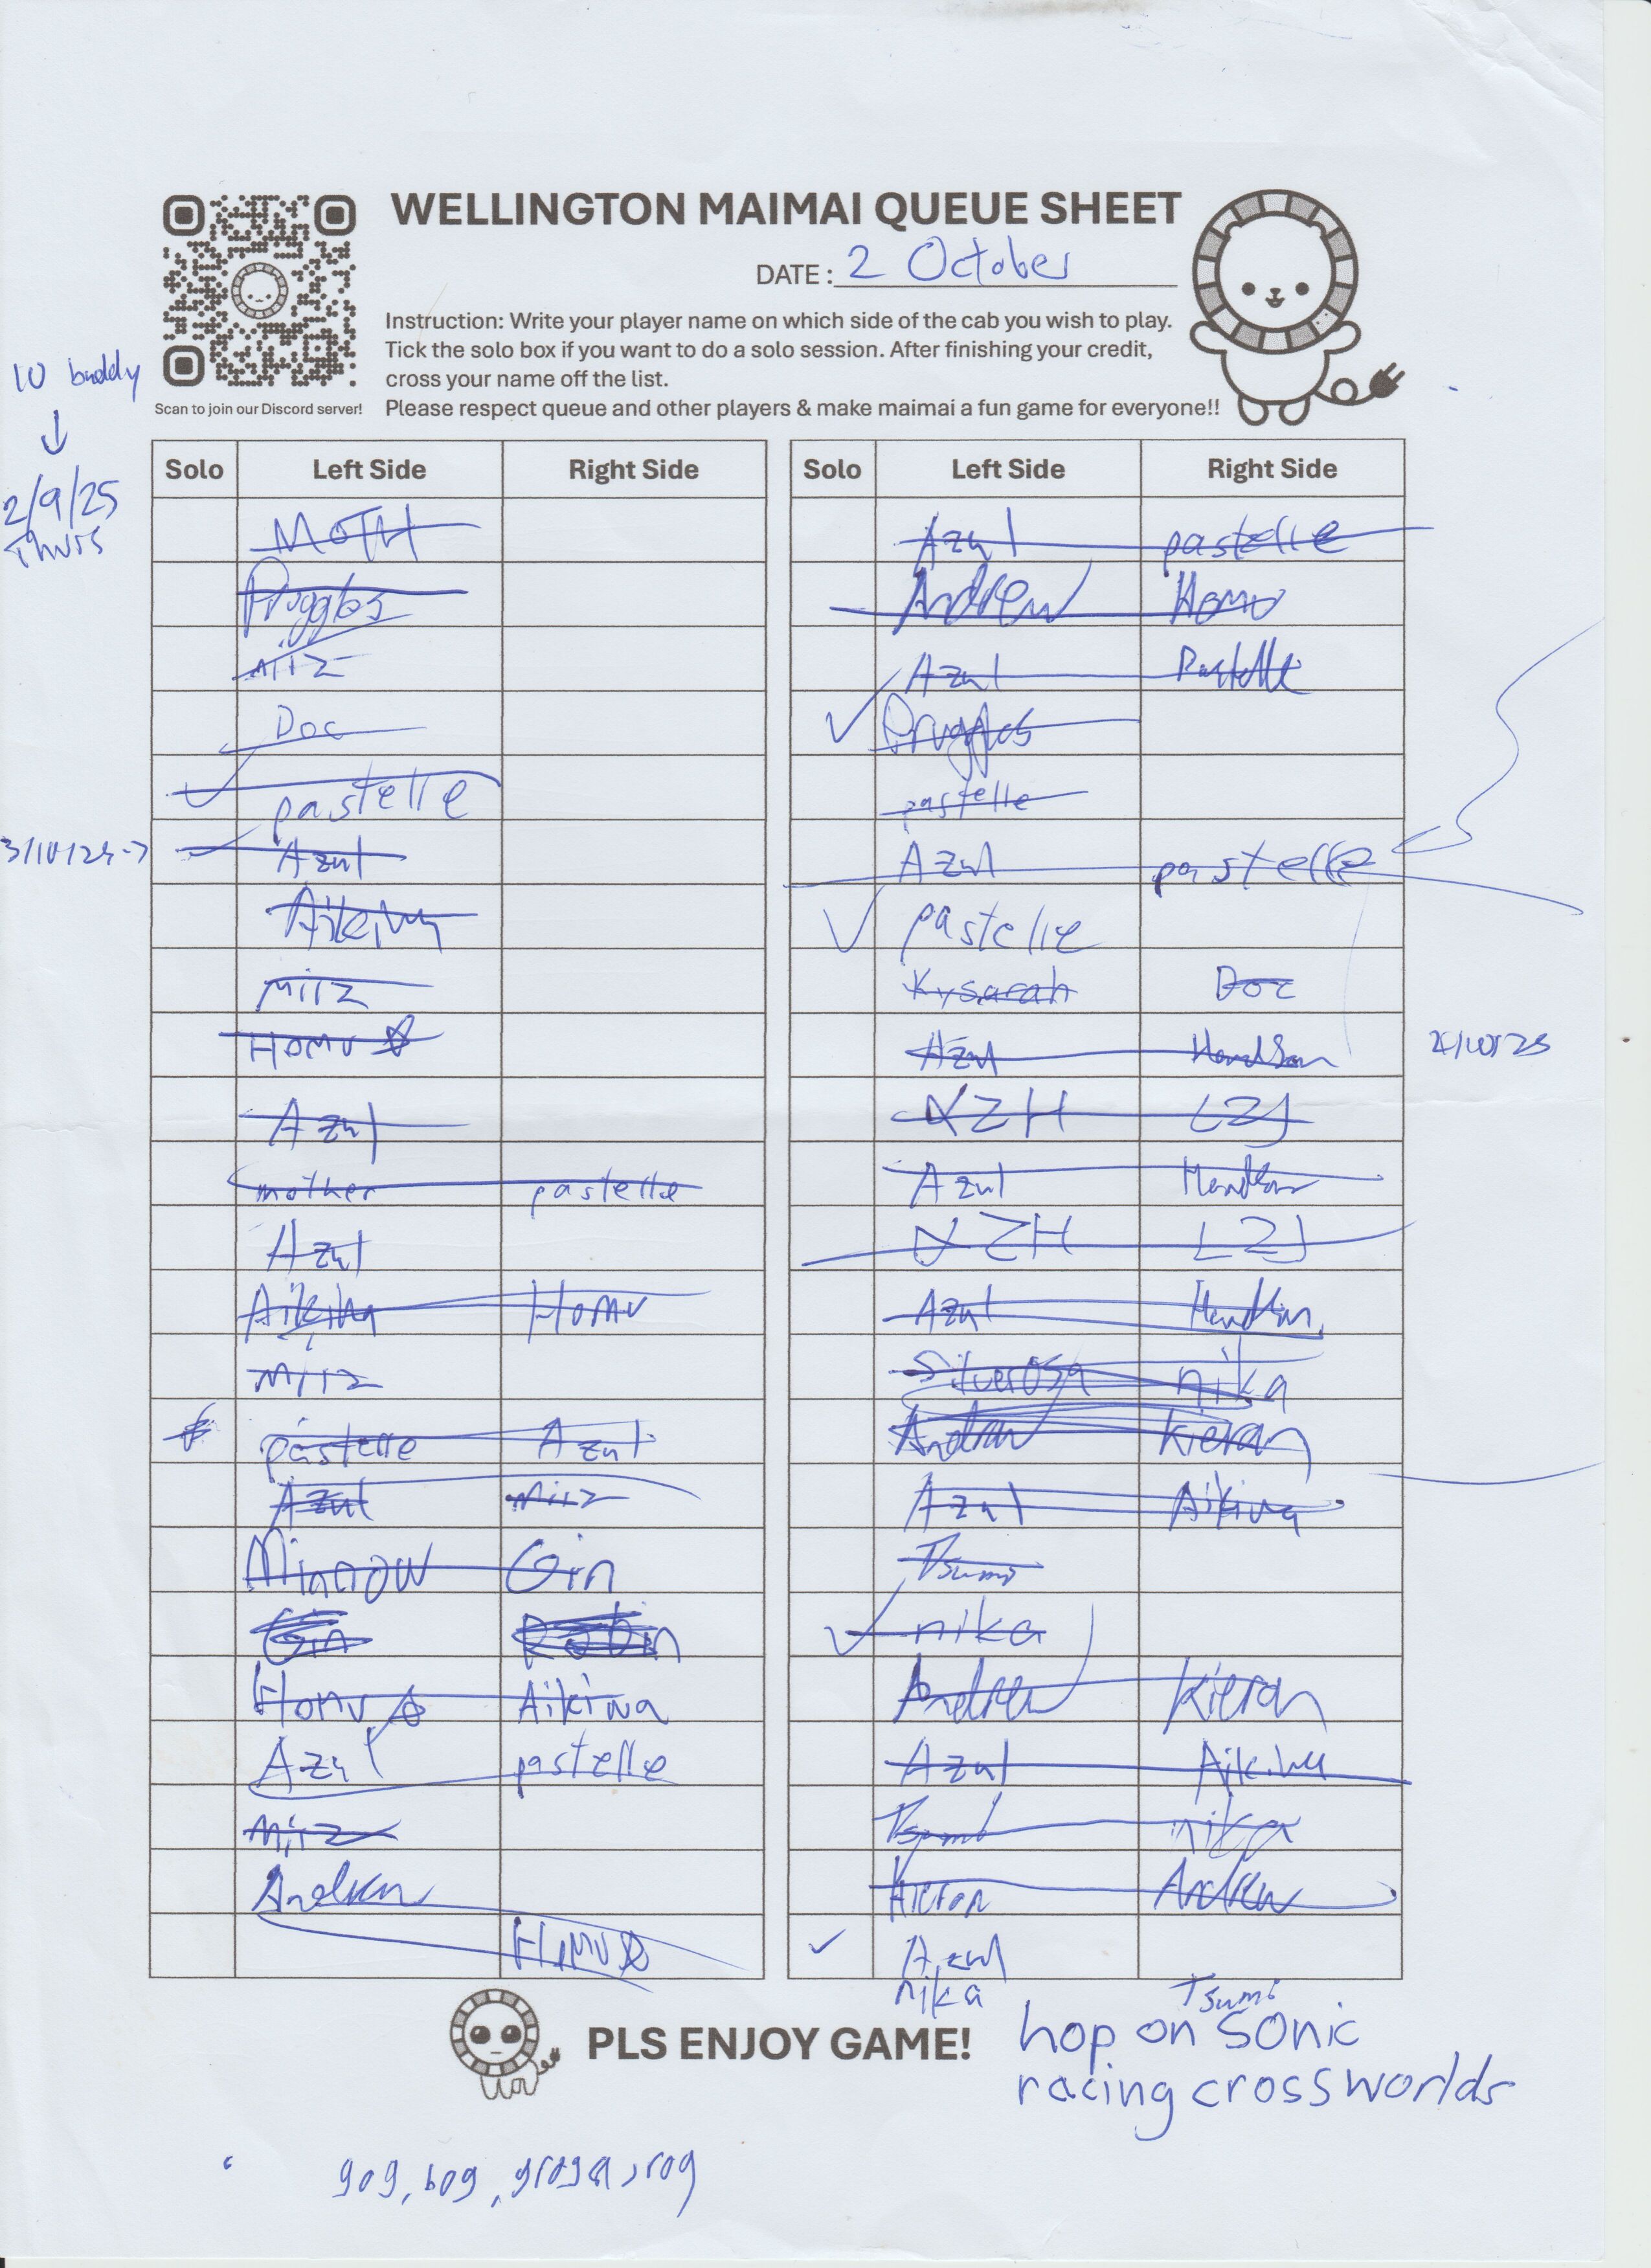 WELLINGTON MAIMAI QUEUE SHEET
DATE: 2 October
Instruction: Write your player name on which side of the cab you wish to play.
Tick the solo box if you want to do a solo session. After finishing your credit,
cross your name off the list.
Please respect queue and other players & make maimai a fun game for everyone!!
Scan to join our Discord server!
10 buddy
↓
2/9/25
Thurs
Solo Left Side Right Side
MOTH
Pruggles
mitz
Doc
✓ pastelle
3/10/25→ ✓ Azul
Aikiwa
mitz
Homu ☆
Azul
mother pastelle
Azul
Aikiwa Homu
mitz
pastelle Azul
Azul mitz
Minnow Gin
Gin Robin
Homu ☆ Aikiwa
Azul pastelle
mitz
Andrew
Homu ☆
Solo Left Side Right Side
Azul pastelle
Andrew Homu
Azul Pastelle
✓ Pruggles
pastelle
Azul pastelle
✓ pastelle
Kysarah Doc
Azul
NZH LZJ
Azul
NZH LZJ
Azul
Silverosa nika
Andrew Kieran
Azul Aikiwa
Tsumi
✓ nika
Andrew Kieran
Azul Aikiwa
Tsumi nika
Kieran Andrew
✓ Azul
nika Tsumi
PLS ENJOY GAME!
hop on sonic
racing crossworlds
gog, bog, groga, rog